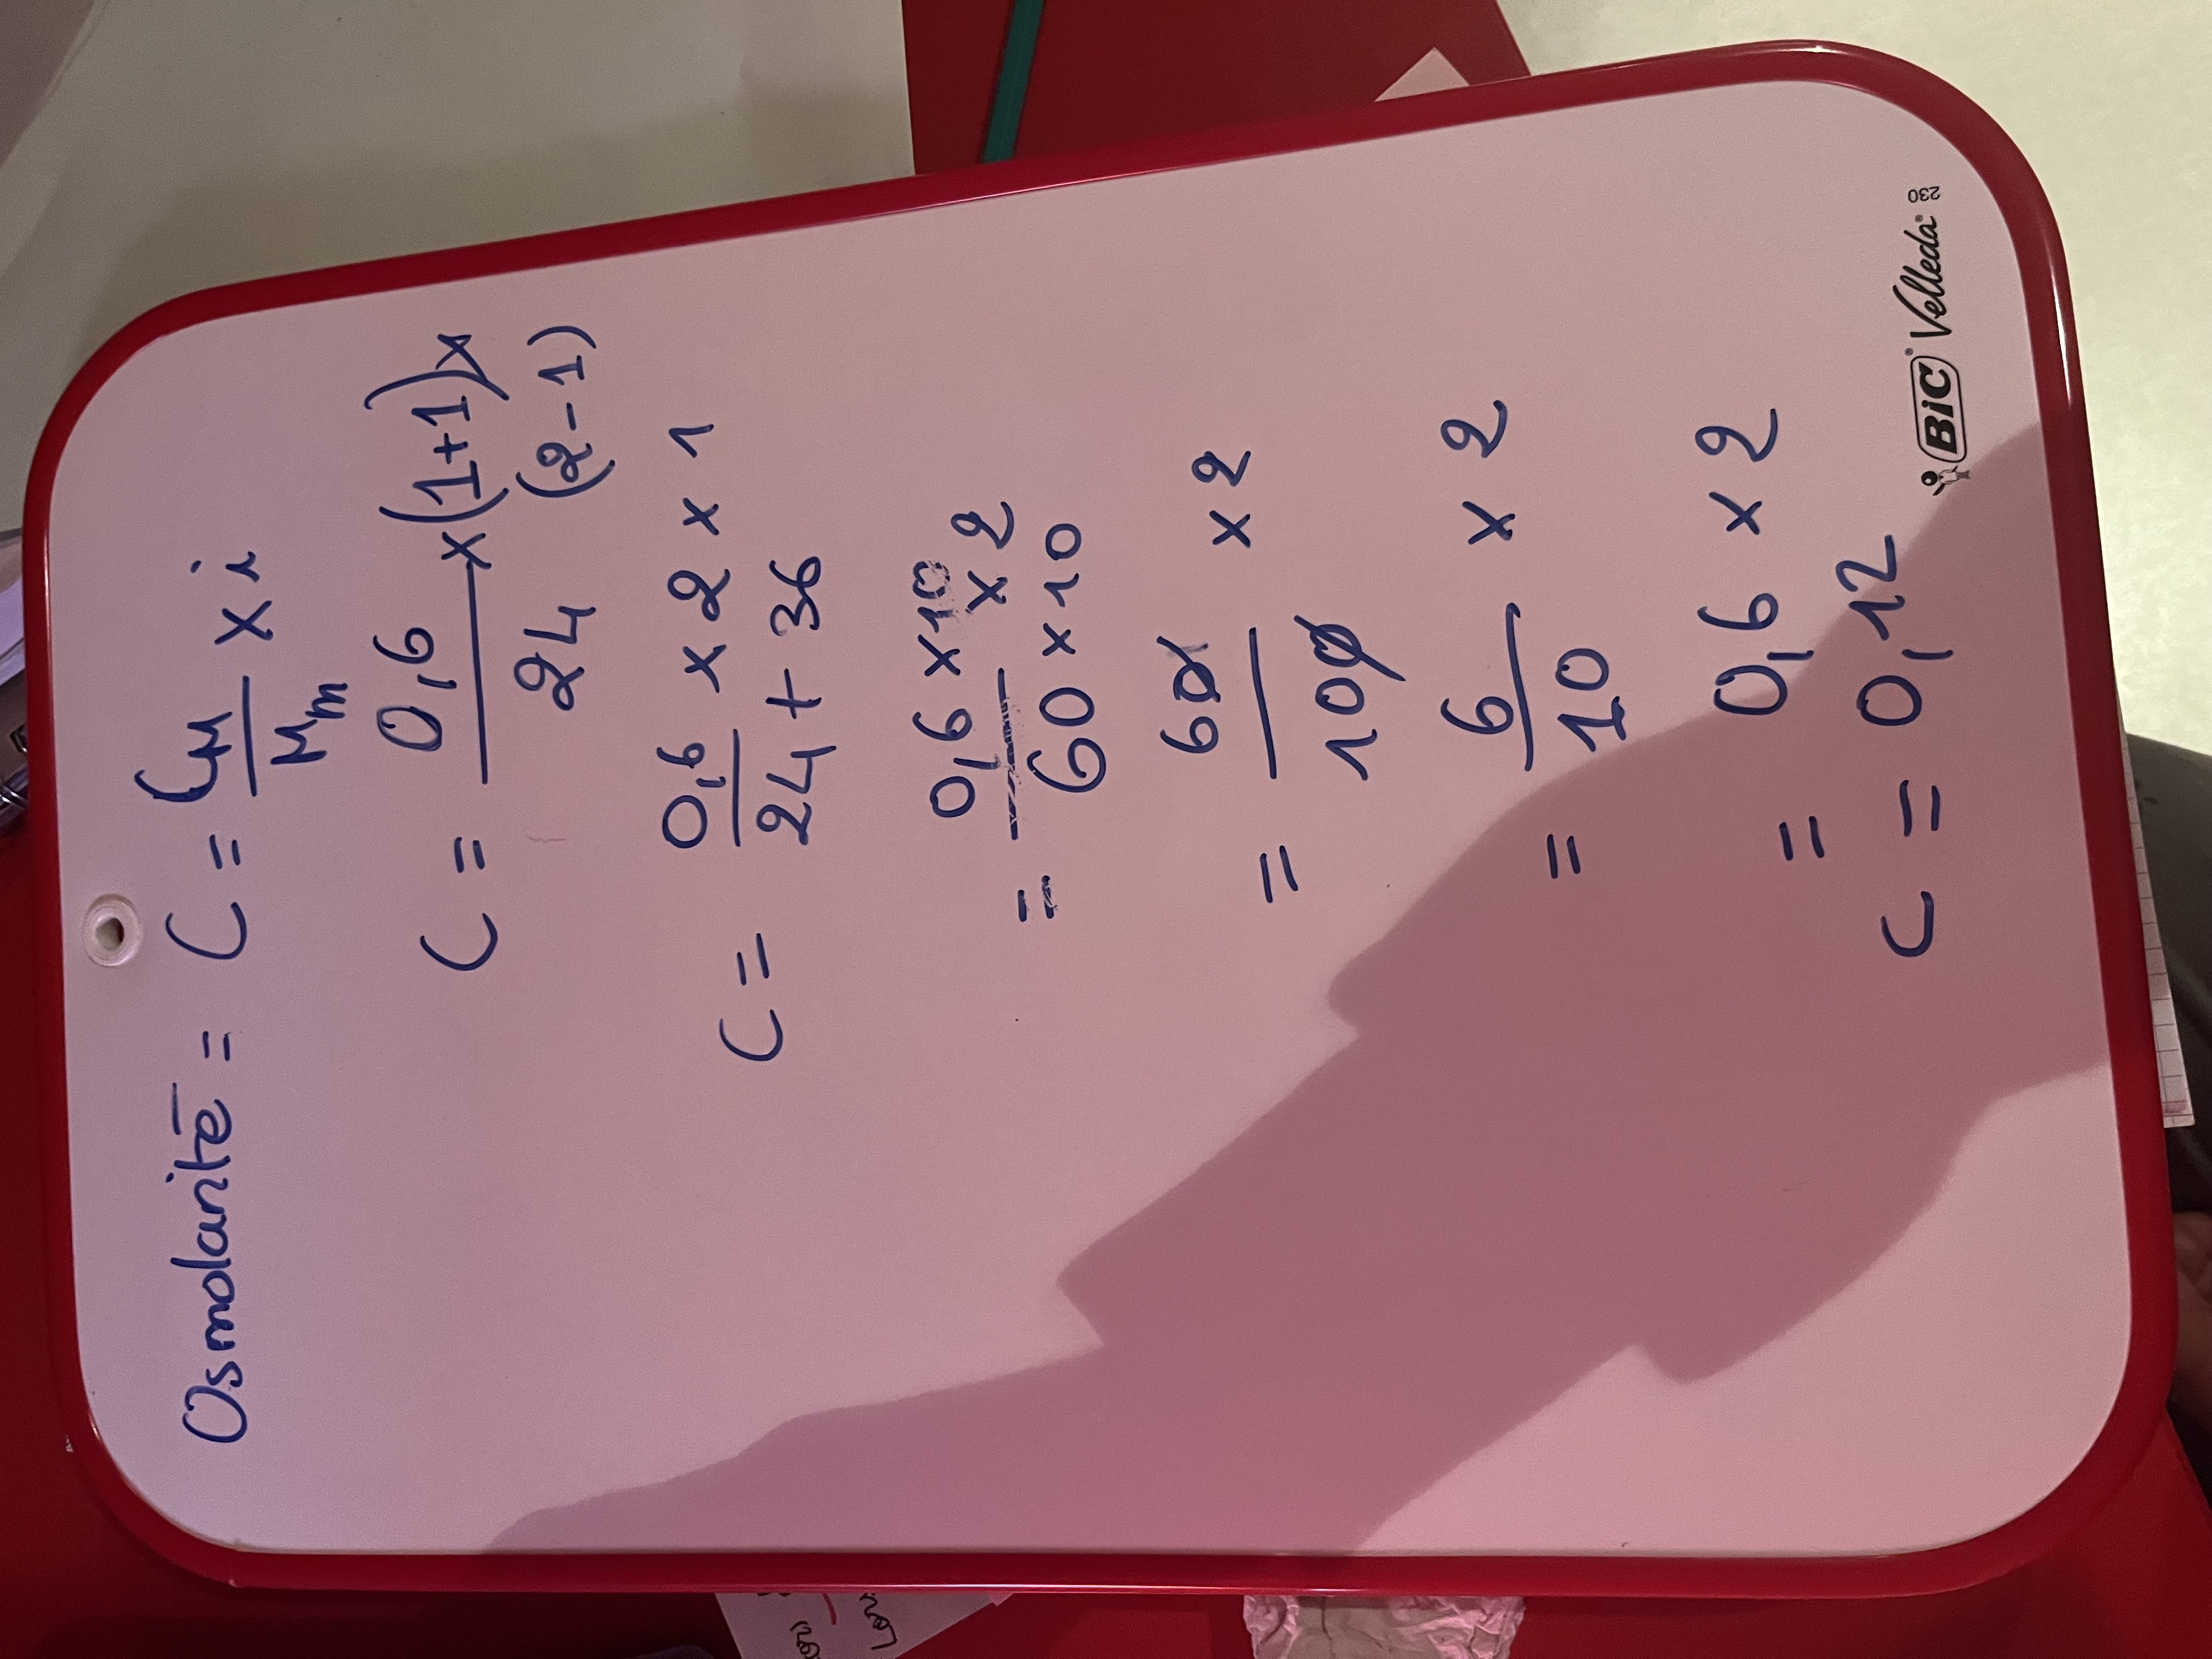 Osmolarité = C = Cμ / Mm x i
C = 0,6 / 24 x (1+1) x
(2-1)
C = 0,6 / 24 + 36 x 2 x 1
= 0,6 x 10 / 60 x 10 x 2
= 60 / 100 x 2
= 6 / 10 x 2
= 0,6 x 2
C = 0,12
BIC Velleda 230